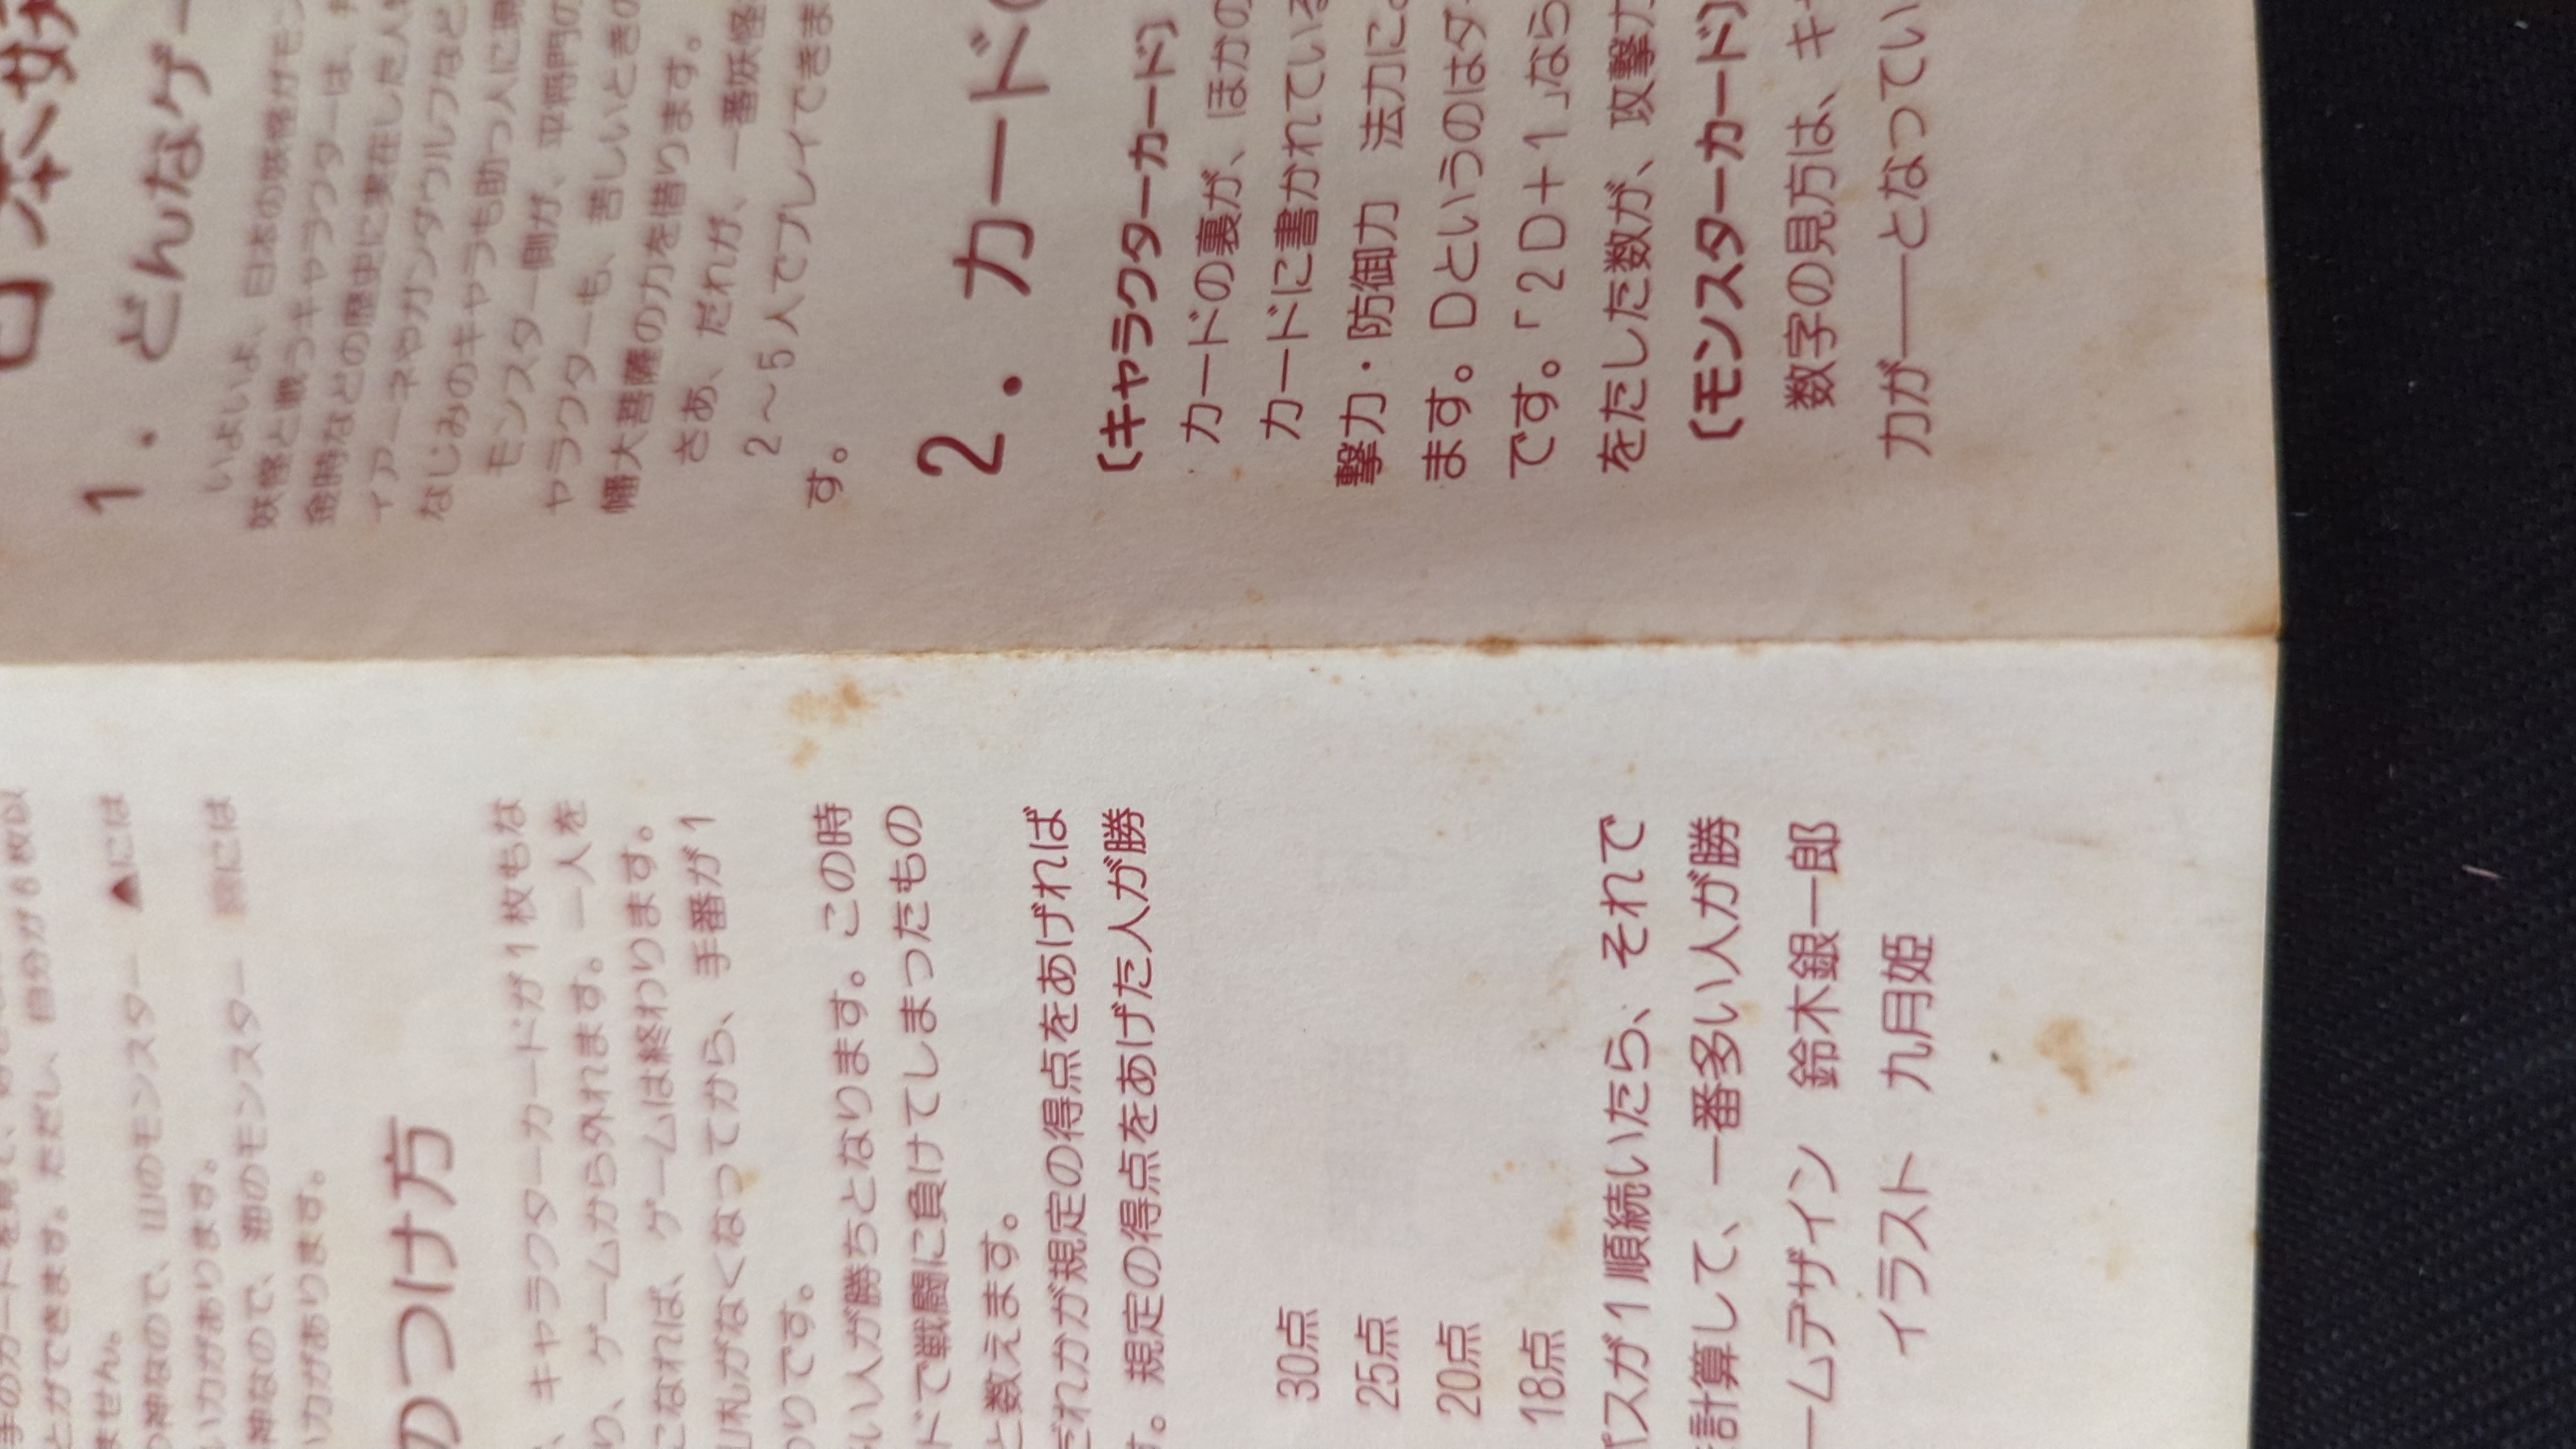 1．どんなゲー
いよいよ、日本の妖怪がモン
妖怪と戦うキャラクターは、
金時などの歴史に実在した人
ィアーネやガンダウルフなど
なじみのキャラも助っ人に
モンスター側が、平将門の
ャラクターも、苦しいときの
幡大菩薩の力を借ります。
さあ、だれが、一番妖怪
2～5人でプレイできま
す。
2．カード
〔キャラクターカード〕
カードの裏が、ほかの
カードに書かれている
撃力・防御力 法力に
ます。Dというのはダ
です。「2D＋1」なら
をたした数が、攻撃力
〔モンスターカード〕
数字の見方は、キ
力が——となってい
手のカードを見て、
とができます。ただし、自分が6枚以
ません。
の神なので、山のモンスター ▲には
い力があります。
神なので、 のモンスター には
い力があります。
のつけ方
、キャラクターカードが1枚もな
り、ゲームから外れます。一人を
になれば、ゲームは終わります。
山札がなくなってから、手番が1
わりです。
い人が勝ちとなります。この時
ドで戦闘に負けてしまったもの
と数えます。
だれかが規定の得点をあげれば
す。規定の得点をあげた人が勝
30点
25点
20点
18点
パスが1順続いたら、それで
計算して、一番多い人が勝
ームデザイン 鈴木銀一郎
イラスト 九月姫